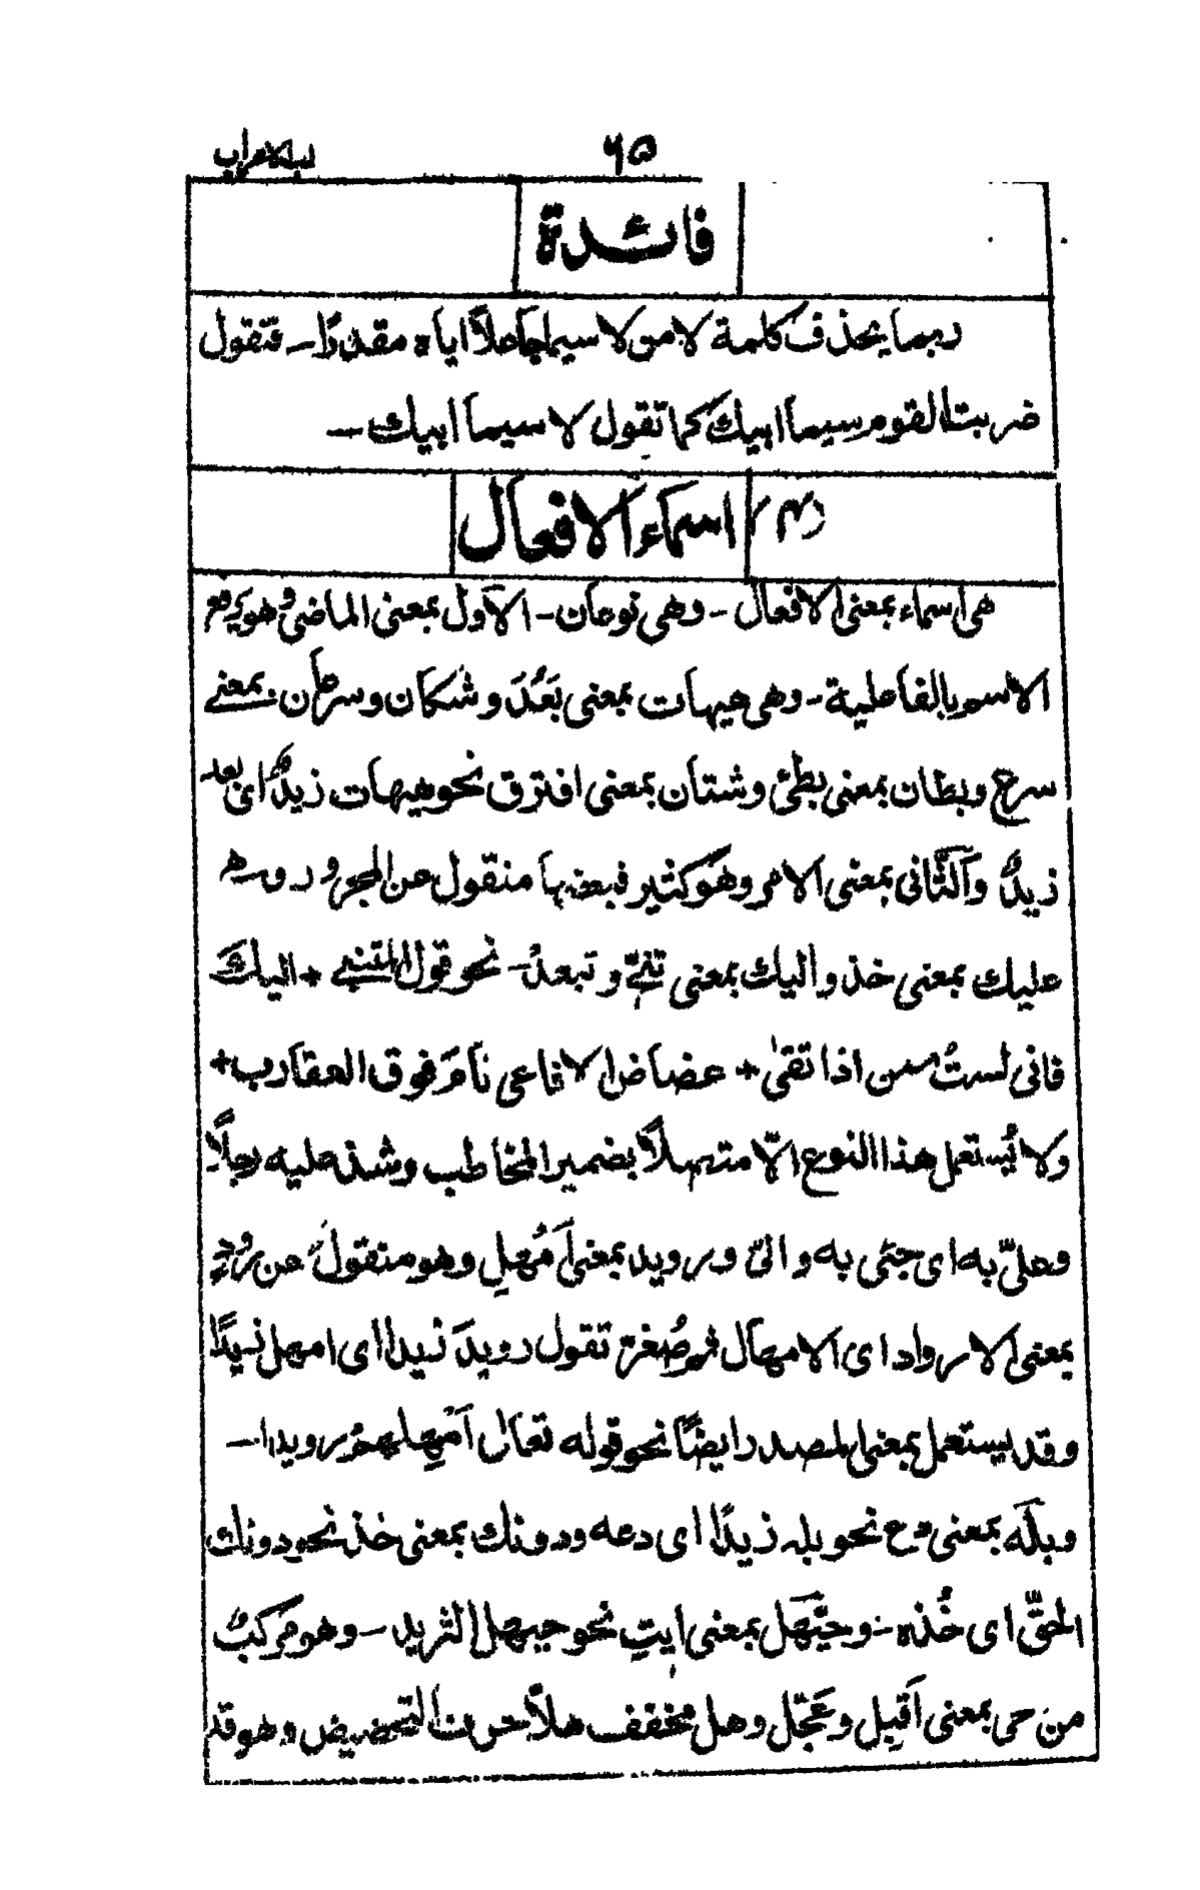 ٦٥ لب الاعراب
فائدة
ربما يحذف كلمة لا من لا سيما جاعلاً اياه مقدرًا - فتقول
ضربت القوم سيما ابيك كما تقول لا سيما ابيك -
(٣) اسماء الافعال
هى اسماء بمعنى الافعال - وهى نوعان - الاول بمعنى الماضى وهو يرفع
الاسم بالفاعلية - وهى هيهات بمعنى بَعُدَ وشكان وسرعان بمعنى
سرع وبطان بمعنى بطئ وشتان بمعنى افترق نحو هيهات زيدٌ اى بعد
زيدٌ والثّانى بمعنى الامر وهو كثير فبعضها منقول عن المجرور وهو
عليك بمعنى خذ واليك بمعنى تنحّ وتبعد - نحو قول المتنبى + اليك
فانى لستُ ممن اذا تقىٰ + عضاض الافاعى نامَ فوق العقارب +
ولا يُستعمل هذا النوع الّا متصلاً بضمير المخاطب وشذ عليه رجلاً
وعلىّ به اى جئى به والىّ ورويد بمعنى اَمْهِل وهو منقول عن رُودٍ
بمعنى الارواد اى الامهال ثم صُغر تقول رويدَ زيدا اى امهل زيدًا
وقد يستعمل بمعنى المصدر ايضًا نحو قوله تعالى اَمْهِلهم رويدا -
وبلَه بمعنى دع نحو بله زيدًا اى دعه ودونك بمعنى خذ نحو دونك
الحقّ اى خُذه - وحيَّهَل بمعنى ايتِ نحو حيهل الثريد - وهو مركبٌ
من حى بمعنى اَقْبِل وعَجِّل وهل مخفف هلاّ حرف التحضيض وهو قد